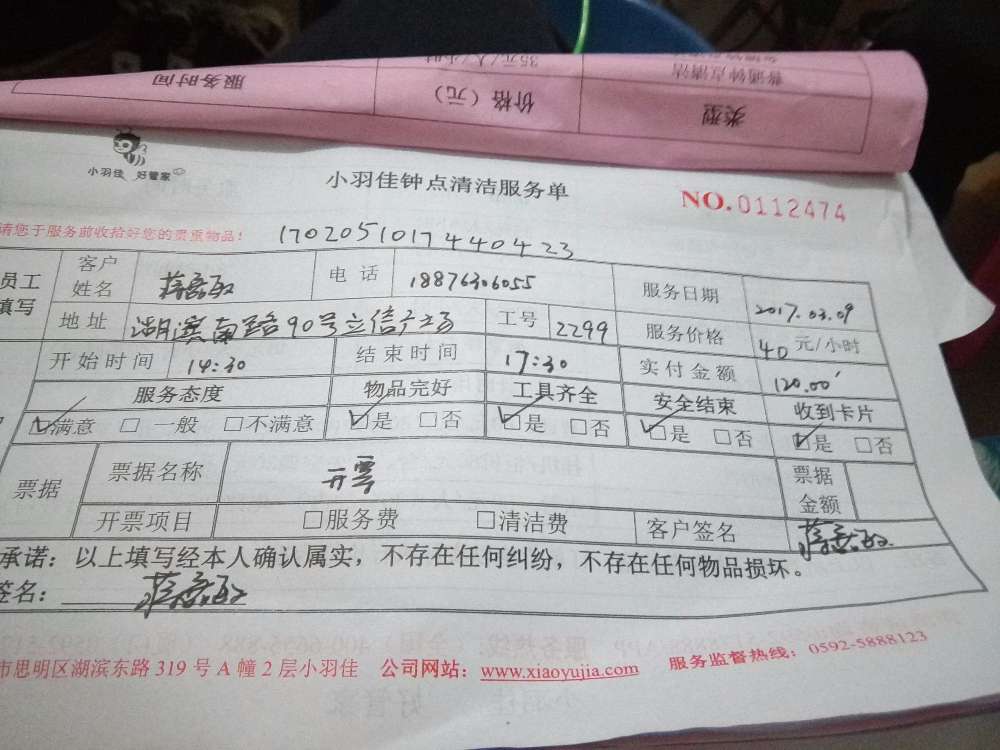 35元/人/小时
普通钟点清洁
服务时间
价格（元）
类型
小羽佳 好管家
小羽佳钟点清洁服务单
NO.0112474
请您于服务前收拾好您的贵重物品！
17020510174404423
员工
填写
客户
姓名
电话
18876306055
服务日期
2017.03.09
地址
湖滨南路90号立信广场
工号
2299
服务价格
40元/小时
开始时间
14:30
结束时间
17:30
实付金额
120.00
服务态度
物品完好
工具齐全
安全结束
收到卡片
☑满意 □ 一般 □不满意
☑是 □否
☑是 □否
☑是 □否
☑是 □否
票据
票据名称
开票
票据
金额
开票项目
□服务费
□清洁费
客户签名
承诺：以上填写经本人确认属实，不存在任何纠纷，不存在任何物品损坏。
签名：
市思明区湖滨东路 319 号 A 幢 2 层小羽佳 公司网站：www.xiaoyujia.com 服务监督热线：0592-5888123